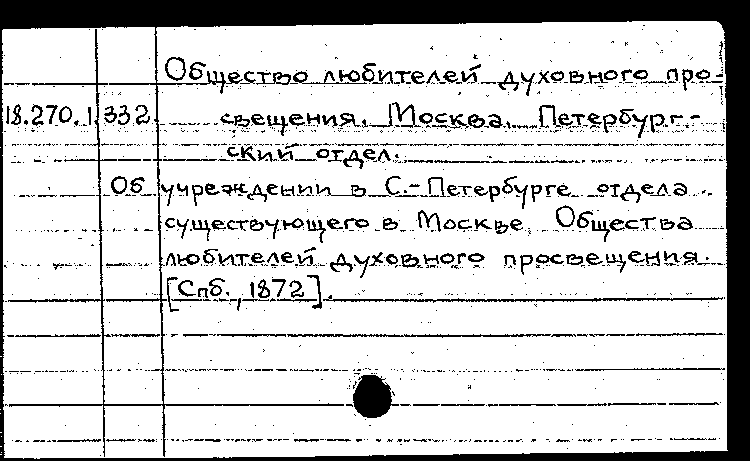 Общество любителей духовного про-
18.270.1.332. свещения. Москва. Петербург-
ский отдел.
Об учреждении в С.-Петербурге отдела
существующего в Москве Общества
любителей духовного просвещения.
[Спб., 1872].